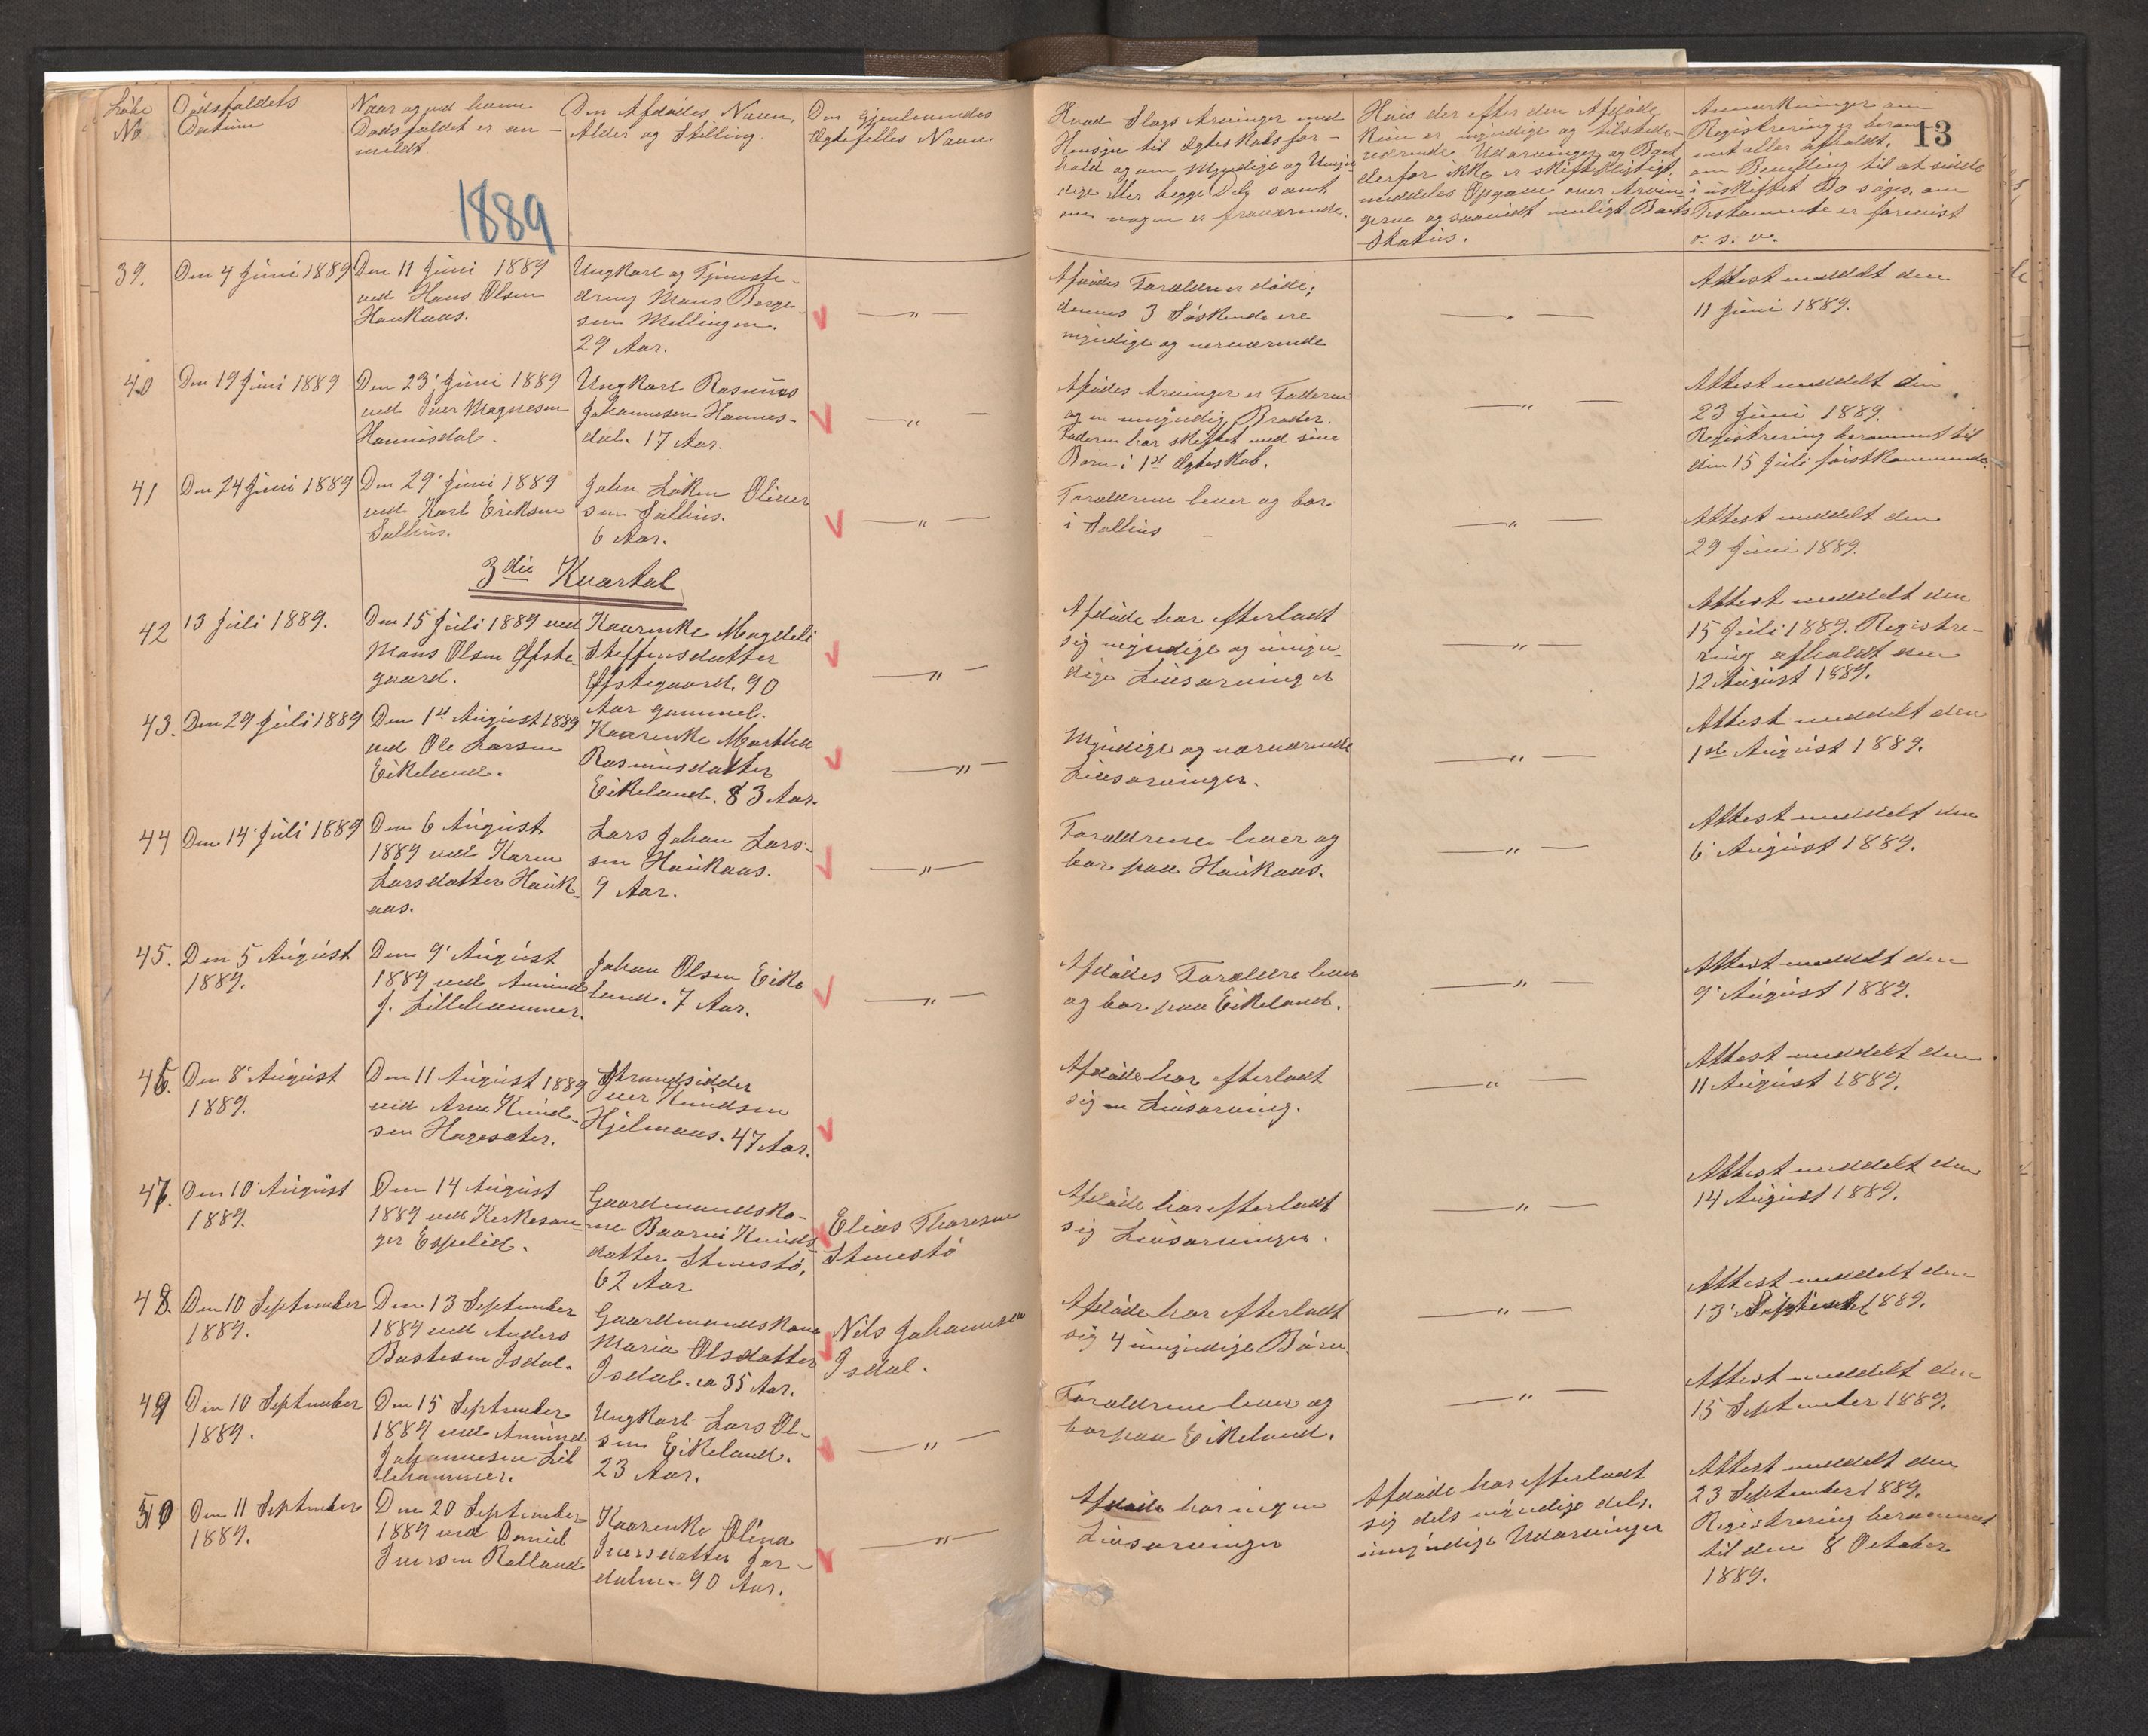 Löbe
No
Dödsfaldets
Datum
Naar og ved hvem
Dödsfaldet er an-
meldt
Den Afdødes Navn,
Alder og Stilling
Den Gjenlevendes
Ægtefelles Navn
1889
Hvad Slags Arvinger med
Hensyn til Ægteskabsfor-
hold og om Myndige og Umyn
dige eller begge Dele samt
om nogen er fraværende.
Hvis der efter den Afdøde
kun er myndige og tilstede-
værende Udarvinger og Boet
derfor ikke er skiftepligtigt
meddeles Opgave over Arvin
gerne og saavidt muligt Boets
Status.
Anmerkninger om
Registrering er beram-
met eller afholdt,
om Bevilling til at sidde
i uskiftet Bo søges, om
Testamente er forevist
o. s. v.
13
39.
Den 4 Juni 1889
Den 11 Juni 1889
ved Hans Olsen
Haukaas.
Ungkarl og Tjeneste-
dreng Mons Berge-
sen Mellingen.
29 Aar.
— " —
Afdødes Forældre er døde;
dennes 3 Søskende ere
myndige og nerværende
— " —
Attest meddelt den
11 Juni 1889.
40
Den 19 Juni 1889
Den 23' Juni 1889
ved Iver Magnesen
Hannisdal.
Ungkarl Rasmus
Johannesen Hannes-
dal. 17 Aar.
— " —
Afdødes Arvinger er Faderen
og en umyndig Broder.
Faderen har skiftet med sine
Børn i 1st Ægteskab.
— " —
Attest meddelt den
23 Juni 1889.
Registrering berammet til
den 15 Juli førstkommende.
41
Den 24 Juni 1889
Den 29' Juni 1889
ved Karl Eriksen
Salhus.
John Loken Oliver
sen Salhus.
6 Aar.
— " —
Forældrene lever og bor
i Salhus
— " —
Attest meddelt den
29 Juni 1889.
3die Kvartal
42
13 Juli 1889.
Den 15 Juli 1889 ved
Mons Olsen Øfste-
gaard.
Kaarenke Magdeli
Steffensdatter
Øfstegaard. 90
Aar gammel.
— " —
Afdøde har efterladt
sig myndige og umyn-
dige Livsarvinger
— " —
Attest meddelt den
15 Juli 1889. Registre-
ring afholdt den
12 August 1889.
43.
Den 29 Juli 1889
Den 1st August 1889
ved Ole Larsen
Eikeland.
Kaarenke Marthe
Rasmusdatter
Eikeland. 83 Aar.
— " —
Myndige og nærværende
Livsarvinger.
— " —
Attest meddelt den
1st August 1889.
44
Den 14' Juli 1889
Den 6 August
1889 ved Karen
Larsdatter Hauk-
aas.
Lars Johan Lars-
sen Haukaas.
9 Aar.
— " —
Forældrene lever og
bor paa Haukaas.
— " —
Attest meddelt den
6' August 1889.
45.
Den 5 August
1889.
Den 9' August
1889 ved Amund
J. Lillehammer.
Johan Olsen Eike
land. 7 Aar.
— " —
Afdødes Forældre lever
og bor paa Eikeland.
— " —
Attest meddelt den
9' August 1889.
46.
Den 8' August
1889.
Den 11 August 1889
ved Arne Knud-
sen Hagesæter.
Strandsidder
Iver Knudsen
Hjelmaas. 47 Aar.
Afdøde har efterladt
sig en Livsarving.
— " —
Attest meddelt den
11 August 1889.
47.
Den 10' August
1889.
Den 14 August
1889 ved Kirkesan-
ger Espelid.
Gaardmandsko-
ne Baarni Knuds-
datter Stussø,
62 Aar
Elias Thoresen
Afdøde har efterladt
sig Livsarvinger.
— " —
Attest meddelt den
14 August 1889.
48.
Den 10 September
1889.
Den 13 September
1889 ved Anders
Bastesen Isdal.
Gaardmandskone
Maria Olsdatter
Isdal. ca 35 Aar.
Nils Johannesen
Isdal.
Afdøde har efterladt
sig 4 umyndige Børn.
— " —
Attest meddelt den
13' September 1889.
49
Den 10 September
1889.
Den 15 September
1889 ved Amund
Johannesen Lil
lehammer.
Ungkarl Lars Ol-
sen Eikeland.
23 Aar.
— " —
Forældrene lever og
bor paa Eikeland.
— " —
Attest meddelt den
15 September 1889.
50
Den 11 September
1889.
Den 20 September
1889 ved Daniel
Iversen Rolland
Kaarenke Olina
Iversdatter Jor-
dalen. 90 Aar.
— " —
Afdøde har ingen
Livsarvinger
Afdøde har efterladt
sig dels myndige dels
umyndige Udarvinger
Attest meddelt den
23 September 1889.
Registrering berammet
til den 8 October
1889.